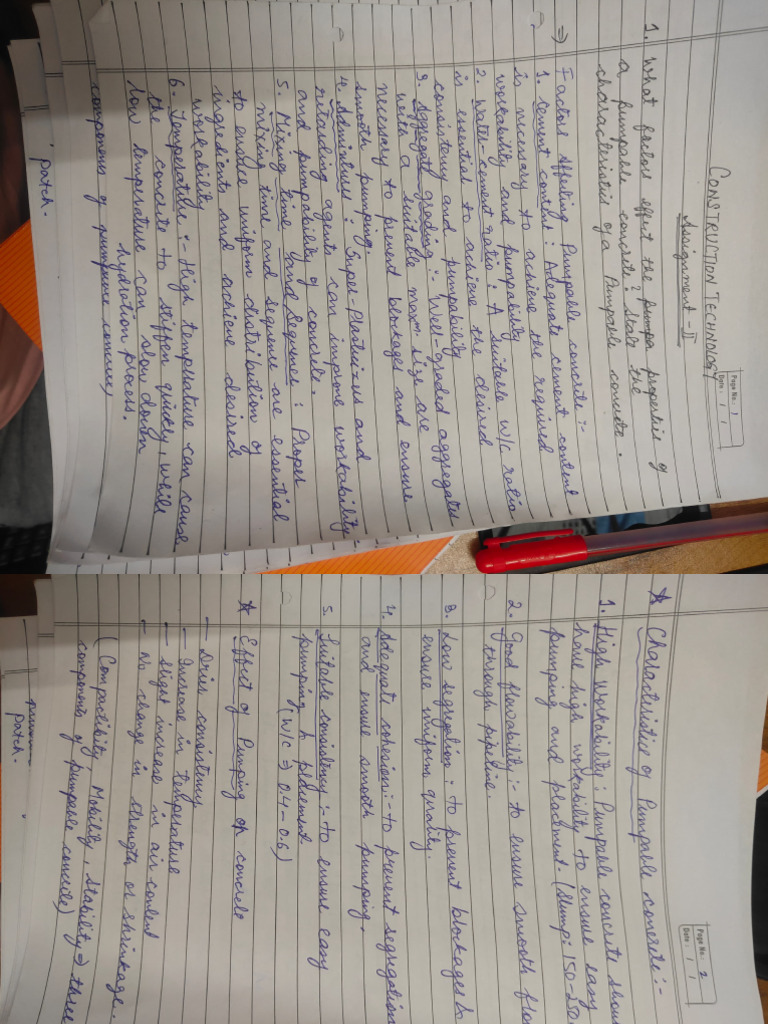 Page No.: 1
Date: / /
CONSTRUCTION TECHNOLOGY
Assignment - II
1. What factors effect the properties of
a pumpable concrete? State the
characteristics of a Pumpable concrete.
=) Factors Affecting Pumpable concrete :-
1. Cement content : Adequate cement content
is necessary to achieve the required
workability and pumpability.
2. Water-cement ratio : A suitable w/c ratio
is essential to achieve the desired
consistency and pumpability
3. Aggregate grading :- Well-graded aggregates
with a suitable maxm size are
necessary to prevent blockages and ensure
smooth pumping.
4. Admixtures : Super-Plasticizers and
retarding agents can improve workability
and pumpability of concrete.
5. Mixing time and sequence : Proper
mixing time and sequence are essential
to ensure uniform distribution of
ingredients and achieve desired
workability
6. Temperature :- High temperature can cause
the concrete to stiffen quickly, while
low temperature can slow down
hydration process.
components of pumpable concrete)
patch.
Page No.: 2
Date: / /
* Characteristics of Pumpable concrete :-
1. High workability : Pumpable concrete shou
have high workability to ensure easy
pumping and placement. (slump: 150-250
2. Good flowability :- to ensure smooth flo
through pipeline.
3. Low segregation : to prevent blockages &
ensure uniform quality.
4. Adequate cohesion :- to prevent segregation
and ensure smooth pumping.
5. Suitable consistency :- to ensure easy
pumping & placement
(W/C => 0.4-0.6)
* Effect of Pumping on concrete
- Drier consistency
- Increase in temperature
- slight increase in air content
- No change in strength or shrinkage.
(Compactibility, Mobility, Stability => three
components of pumpable concrete)
patch.